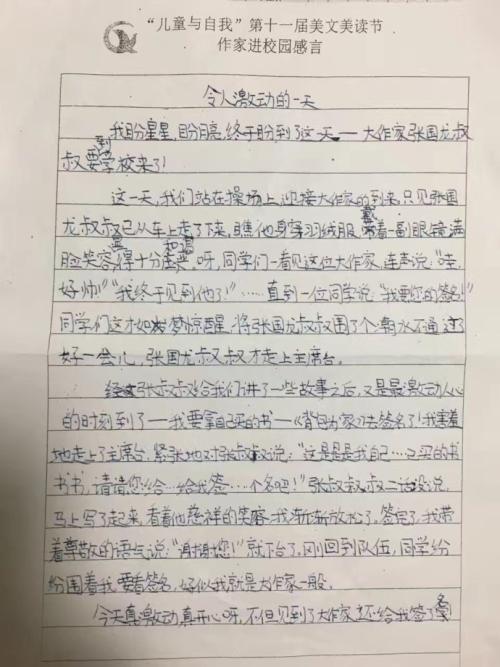 “儿童与自我”第十一届美文美读节
作家进校园感言
令人激动的一天
我盼星星,盼月亮,终于盼到了这一天——大作家张国龙叔
叔要到学校来了!
这一天,我们站在操场上,迎接大作家的到来,只见张国
龙叔叔已从车上走了下来,瞧他身穿羽绒服,戴着一副眼镜,满
脸笑容,显得十分和谐。呀,同学们一看见这位大作家,连声说:“哇,
好帅!”“我终于见到他了!”……直到一位同学说:“我要您的签名!”
同学们这才如梦惊醒,将张国龙叔叔围了个朝水不通,过了
好一会儿,张国龙叔叔才走上主席台。
张叔叔给我们讲了一些故事之后,又是最激动人心
的时刻到了——我要拿自己买的书——《背包为家》去签名了!我害羞
地走上了主席台,紧张地对张叔叔说:“这是是是我自…己买的书
书书,请请您给…给我签…个名吧!”张叔叔二话没说,
马上写了起来,看着他慈祥的笑容,我渐渐放松了,签完了,我带
着尊敬的语气说:“谢谢您!”就下台了。刚回到队伍,同学纷
纷围着我,要看签名,好似我就是大作家一般。
今天真激动真开心呀,不但见到了大作家,还给我签了名